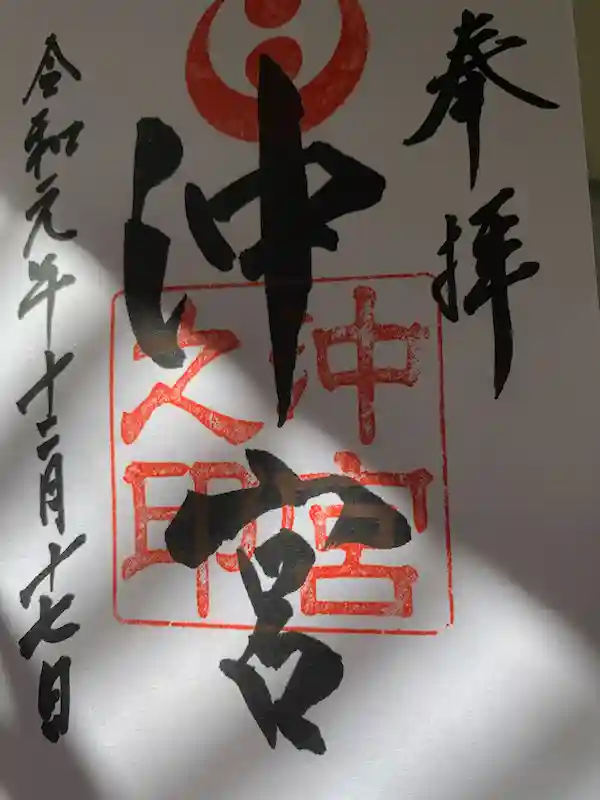 奉拝
沖宮
沖宮
之印
令和元年十二月十七日